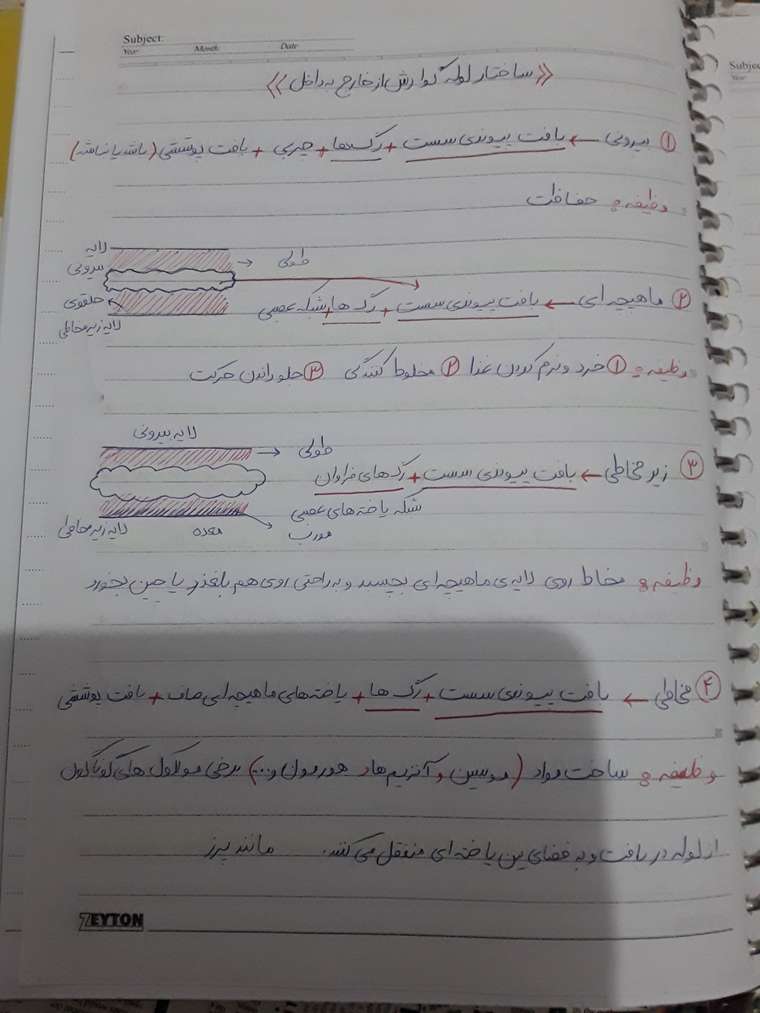 Subject:
Year Month Date
«ساختار لوله گوارش از خارج به داخل»
① بیرونی ← بافت پیوندی سست + رگ‌ها + چربی + بافت پوششی (باشد یا نباشد)
وظیفه: حفاظت
لایه بیرونی
طولی
حلقوی
لایه زیرمخاطی
② ماهیچه ای ← بافت پیوندی سست + رگ ها + شبکه عصبی
وظیفه: ① خرد و نرم کردن غذا ② مخلوط کنندگی ③ جلو راندن حرکت
لایه بیرونی
طولی
③ زیر مخاطی ← بافت پیوندی سست + رگ‌های فراوان
شبکه یاخته های عصبی
لایه زیرمخاطی
معده
مورب
وظیفه: مخاط روی لایه‌ی ماهیچه‌ای بچسبد و به راحتی روی هم بلغزد یا چین بخورد
④ مخاطی ← بافت پیوندی سست + رگ ها + یاخته های ماهیچه ای صاف + بافت پوششی
وظیفه: ساخت مواد (موسین و آنزیم ها و هورمون و...) برخی مولکول های گوناگون
از لوله دریافت و به فضای بین یاخته ای منتقل می‌کند. مانند پرز
ZEYTON
Subjec
Year